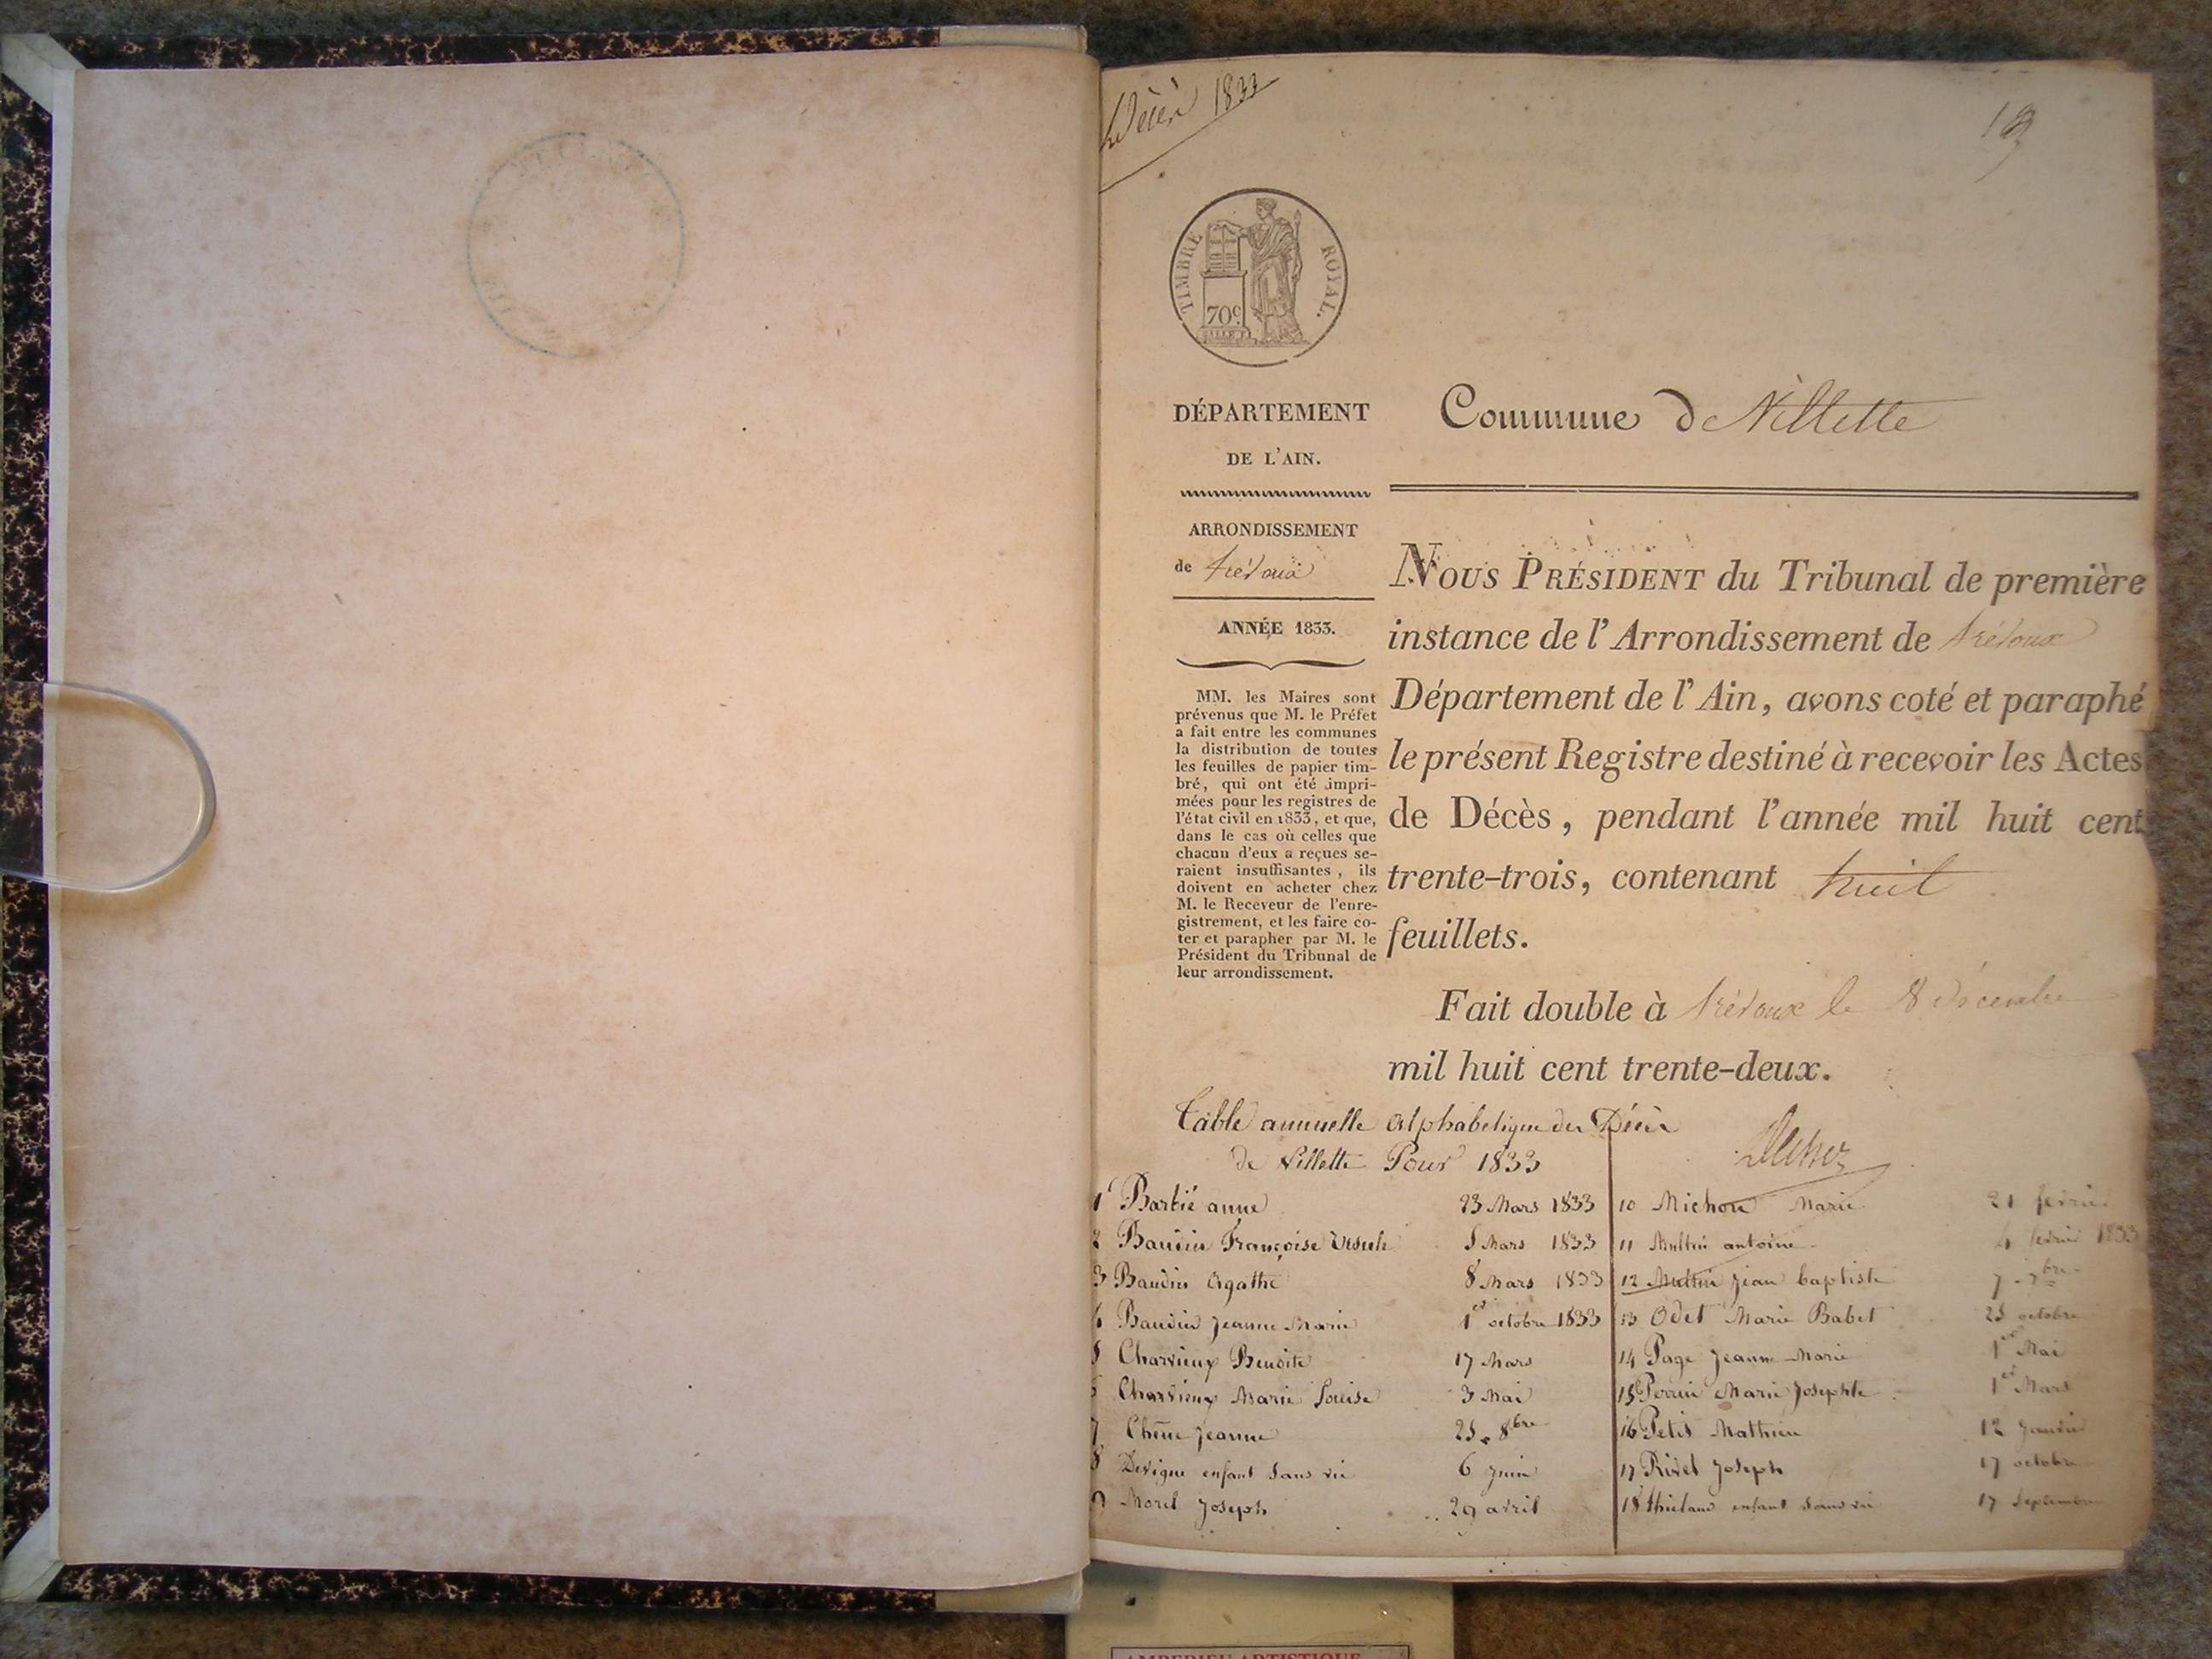 Décès 1833
TIMBRE ROYAL.
70c
DÉPARTEMENT
DE L'AIN.
ARRONDISSEMENT
de trévoux
ANNÉE 1833.
MM. les Maires sont
prévenus que M. le Préfet
a fait entre les communes
la distribution de toutes
les feuilles de papier tim-
bré, qui ont été impri-
mées pour les registres de
l'état civil en 1833, et que,
dans le cas où celles que
chacun d'eux a reçues se-
raient insuffisantes, ils
doivent en acheter chez
M. le Receveur de l'enre-
gistrement, et les faire co-
ter et parapher par M. le
Président du Tribunal de
leur arrondissement.
Commune de Villette
Nous Président du Tribunal de première
instance de l'Arrondissement de trévoux
Département de l'Ain, avons coté et paraphé
le présent Registre destiné à recevoir les Actes
de Décès, pendant l'année mil huit cent
trente-trois, contenant huit
feuillets.
Fait double à trévoux le 8 décembre
mil huit cent trente-deux.
Table annuelle alphabetique des Décès
de Villette Pour 1833
1 Barbié anne 23 Mars 1833
2 Baudin Françoise Ursule 5 Mars 1833
3 Baudin Agathe 8 Mars 1833
4 Baudin Jeanne Marie 1er octobre 1833
5 Charvieux Benoite 17 Mars
6 Charvieux Marie Louise 3 Mai
7 Chêne Jeanne 25 8bre
8 Devigne enfant sans vie 6 Juin
9 Morel Joseph 29 avril
10 Michon Marie 21 fevrier
11 antoine 4 fevrier 1833
12 Jean baptiste 7 7bre
13 Odet Marie Babet 25 octobre
14 Page Jeanne Marie 1er Mai
15 Perrin Marie Josephte 1er Mars
16 Petit Mathieu 12 Janvier
17 Rivet Joseph 17 octobre
18 enfant sans vie 17 Septembre
AMBERIEU ARTISTIQUE